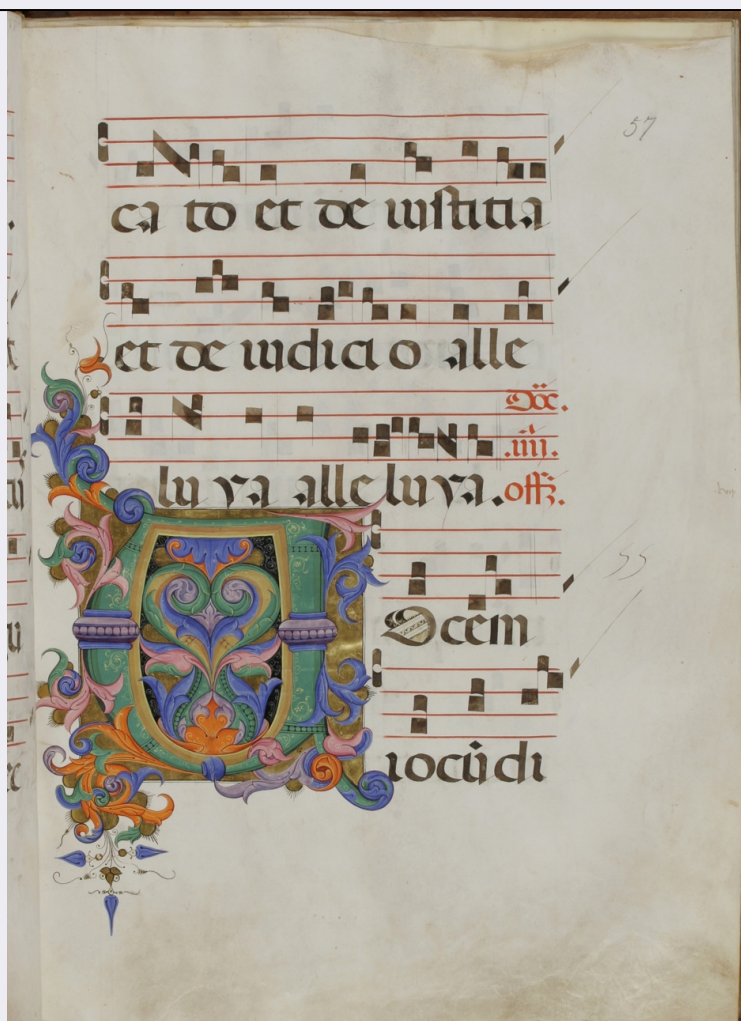 57
ca to et de iustitia
et de iudici o alle
Dōc.
.iiii.
lu ya alleluya. off̄.
55
VOcem
iocūdi